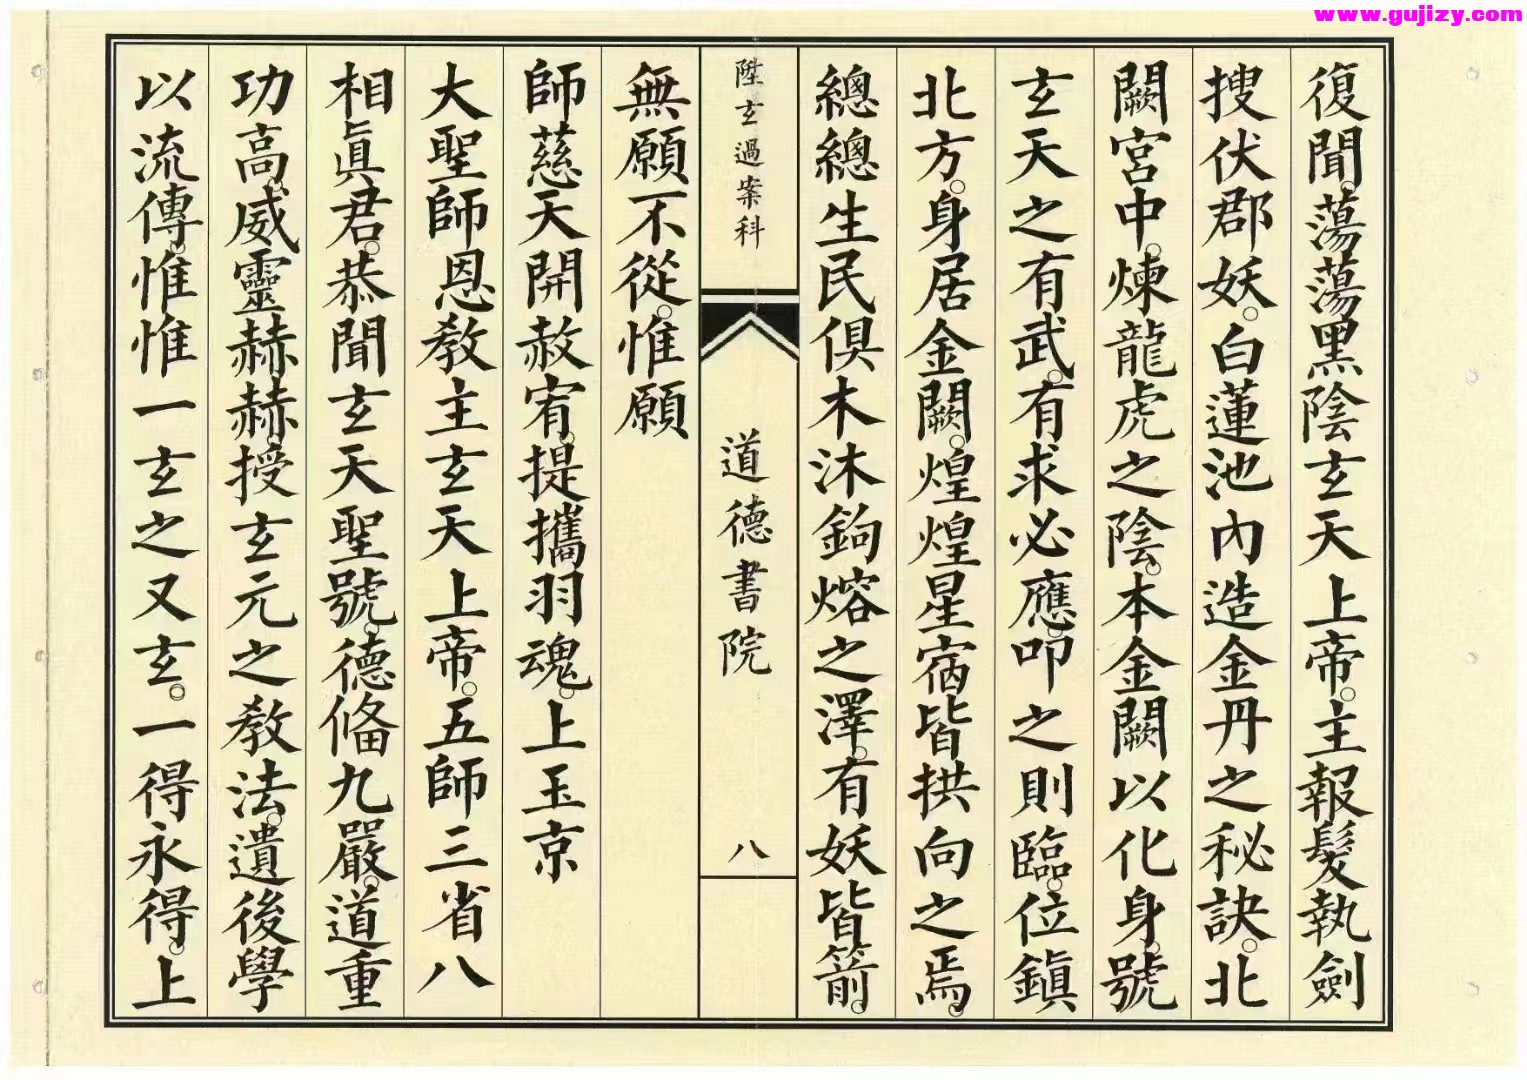 www.gujizy.com
復聞。蕩蕩黑陰玄天上帝。主報髮執劍
搜伏郡妖。白蓮池內造金丹之秘訣。北
闕宮中。煉龍虎之陰。本金闕以化身。號
玄天之有武。有求必應。叩之則臨。位鎮
北方。身居金闕。煌煌星宿皆拱向之焉。
總總生民俱木沐鉤熔之澤。有妖皆箭。
無願不從。惟願
陞玄過案科
道德書院
八
師慈天開赦宥。提攜羽魂。上玉京
大聖師恩教主玄天上帝。五師三省八
相眞君。恭聞玄天聖號。德俻九嚴。道重
功高。威靈赫赫。授玄元之教法。遺後學
以流傳。惟惟一玄之又玄。一得永得。上